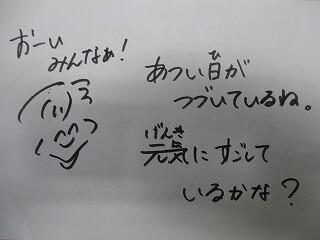 おーい
みんなぁ！
あつい日が
つづいているね。
元気にすごして
いるかな？